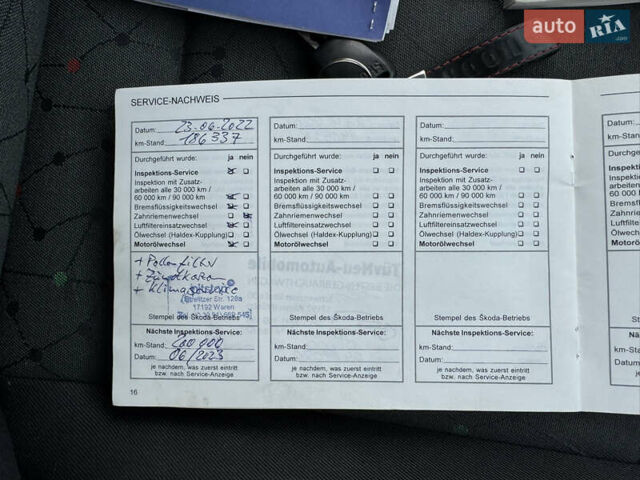 auto RIA
.com
SERVICE-NACHWEIS
Datum: 23.06.2022
km-Stand: 186337
Durchgeführt wurde: ja nein
Inspektions-Service
Inspektion mit Zusatz-
arbeiten alle 30 000 km /
60 000 km / 90 000 km
Bremsflüssigkeitswechsel
Zahnriemenwechsel
Luftfiltereinsatzwechsel
Ölwechsel (Haldex-Kupplung)
Motorölwechsel
+ Pollenfilter
+ Zündkerzen
+ Klimaservice
Strelitzer Str. 128a
17192 Waren
Stempel des Škoda-Betriebs
Nächste Inspektions-Service:
km-Stand: 200 000
Datum: 06/2023
je nachdem, was zuerst eintritt
bzw. nach Service-Anzeige
16
Datum:
km-Stand:
Durchgeführt wurde: ja nein
Inspektions-Service
Inspektion mit Zusatz-
arbeiten alle 30 000 km /
60 000 km / 90 000 km
Bremsflüssigkeitswechsel
Zahnriemenwechsel
Luftfiltereinsatzwechsel
Ölwechsel (Haldex-Kupplung)
Motorölwechsel
TüvNeu-Automobile
Stempel des Škoda-Betriebs
Nächste Inspektions-Service:
km-Stand:
Datum:
je nachdem, was zuerst eintritt
bzw. nach Service-Anzeige
Datum:
km-Stand:
Durchgeführt wurde: ja nein
Inspektions-Service
Inspektion mit Zusatz-
arbeiten alle 30 000 km /
60 000 km / 90 000 km
Bremsflüssigkeitswechsel
Zahnriemenwechsel
Luftfiltereinsatzwechsel
Ölwechsel (Haldex-Kupplung)
Motorölwechsel
Stempel des Škoda-Betriebs
Nächste Inspektions-Service:
km-Stand:
Datum:
je nachdem, was zuerst eintritt
bzw. nach Service-Anzeige